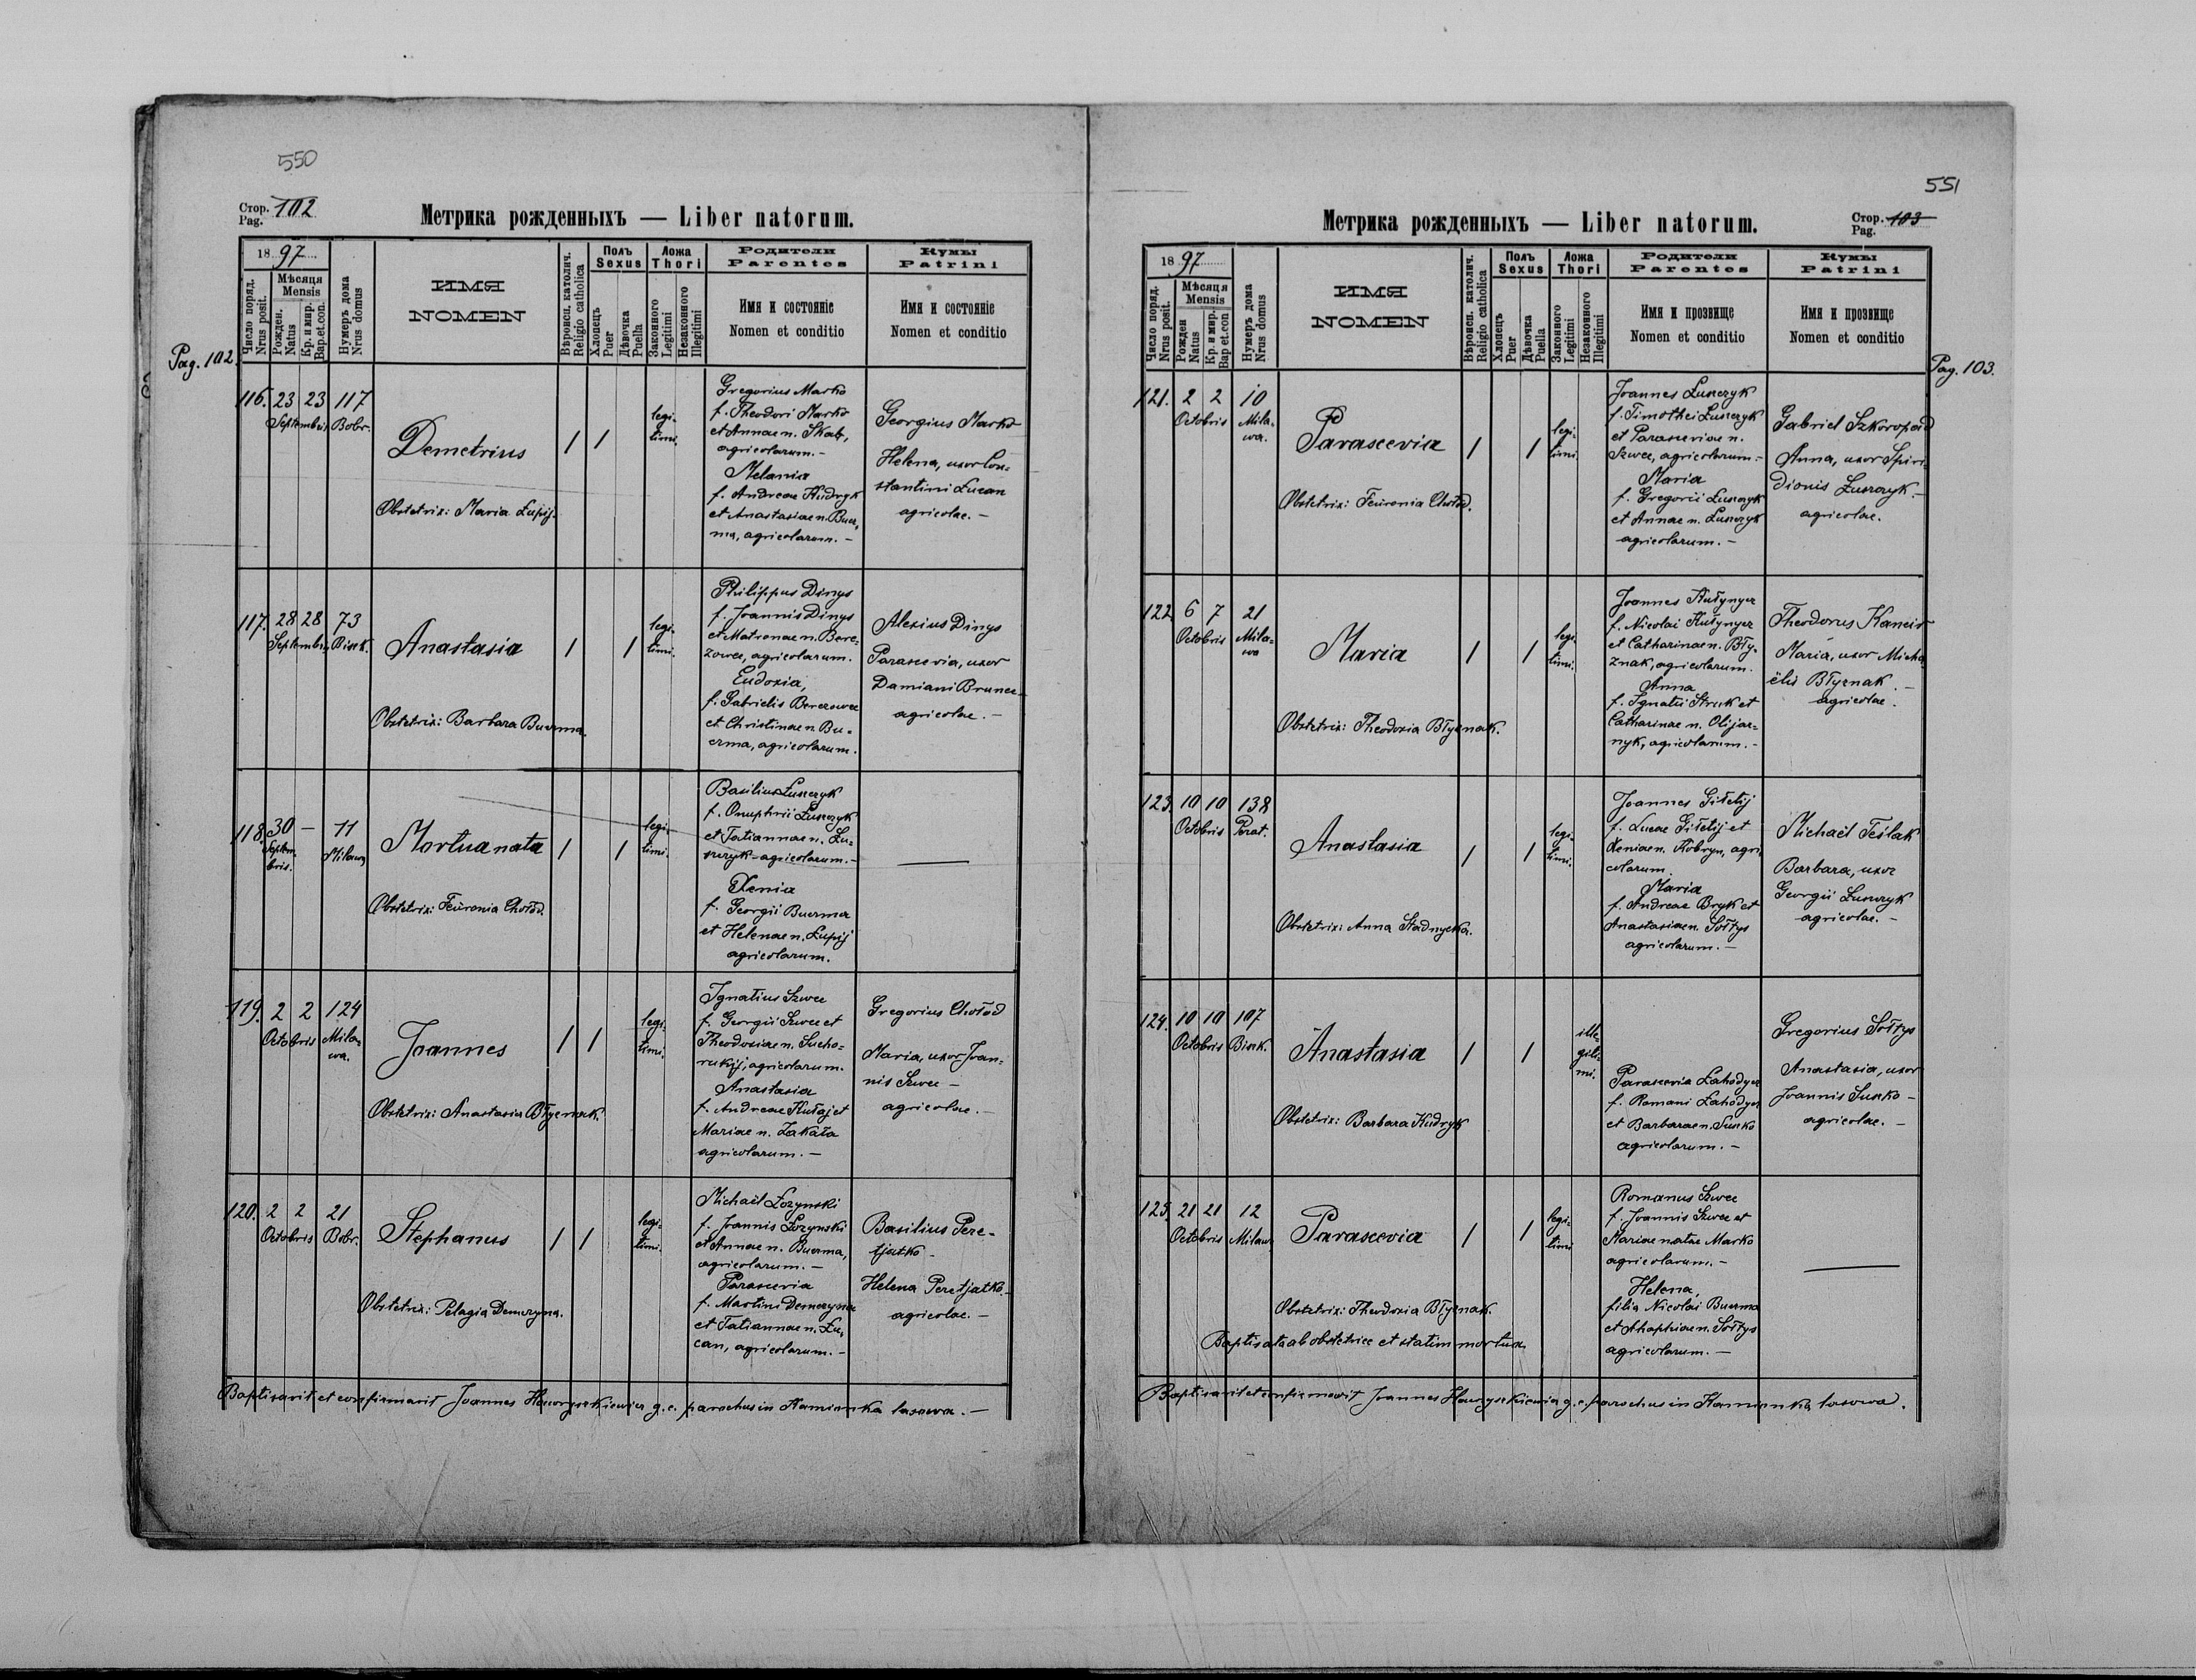 550
Стор. 102
Pag.
Метрика рожденныхъ — Liber natorum.
Pag. 102.
18 97
Число поряд. Nrus posit.
Мѣсяця
Mensis
Рожден. Natus
Кр. и мир. Bap. et. con.
Нумеръ дома Nrus domus
ИМЯ
NOMEN
Вѣроисп. католич. Religio catholica
Полъ
Sexus
Хлопецъ Puer
Дѣвочка Puella
Ложа
Thori
Законного Legitimi
Незаконного Illegitimi
Родители
Parentes
Имя и состояніе
Nomen et conditio
Кумы
Patrini
Имя и состояніе
Nomen et conditio
116. 23 23 117
Septembris Bobr.
Demetrius
Obstetrix: Maria Łupij.
1 1
legi-
timi.
Gregorius Marko
f. Theodori Marko
et Annae n. Skab,
agricolarum. -
Melania
f. Andreae Kudryk
et Anastasiae n. Bucz-
ma, agricolarum. -
Georgius Marko
Helena, uxor Con-
stantini Łucan
agricolae. -
117. 28 28 73
Septembris Bink.
Anastasia
Obstetrix: Barbara Buczma.
1 1
legi-
timi.
Philippus Dinys
f. Joannis Dinys
et Matronae n. Bere-
zowec, agricolarum.
Eudoxia,
f. Gabrielis Berezowec
et Christinae n. Bu-
czma, agricolarum.
Alexius Dinys
Parascevia, uxor
Damiani Brunec
agricolae. -
118. 30 — 11
Septem-
bris. Milawa
Mortua nata
Obstetrix: Feuronia Chołod.
1 1
legi-
timi.
Basilius Łuszczyk
f. Onuphrii Łuszczyk
et Tatiannae n. Łu-
szczyk - agricolarum. -
Xenia
f. Georgii Buczma
et Helenae n. Łupij
agricolarum.
—
119. 2 2 124
Octobris Mila-
wa.
Joannes
Obstetrix: Anastasia Błyznak.
1 1
legi-
timi.
Ignatius Szwec
f. Georgii Szwec et
Theodosiae n. Sucho-
rukij, agricolarum.
Anastasia
f. Andreae Kułaj et
Mariae n. Zakała
agricolarum. -
Gregorius Chołod
Maria, uxor Joan-
nis Szwec -
agricolae. -
120. 2 2 21
Octobris Bobr.
Stephanus
Obstetrix: Pelagia Demczyna.
1 1
legi-
timi.
Michaël Łozynski
f. Joannis Łozynski
et Annae n. Buczma,
agricolarum. -
Parascevia
f. Martini Demczyna
et Tatiannae n. Łu-
can, agricolarum. -
Basilius Pere-
tjatko -
Helena Peretjatko -
agricolae. -
Baptisavit et confirmavit Joannes Hawryszkiewicz g. c. parochus in Kamionka lasowa. -
551
Метрика рожденныхъ — Liber natorum.
Стор. 103
Pag.
Pag. 103.
18 97
Число поряд. Nrus posit.
Мѣсяця
Mensis
Рожден Natus
Кр. и мир. Bap et.con
Нумеръ дома Nrus domus
ИМЯ
NOMEN
Вѣроисп. католич. Religio catholica
Полъ
Sexus
Хлопецъ Puer
Дѣвочка Puella
Ложа
Thori
Законного Legitimi
Незаконного Illegitimi
Родители
Parentes
Имя и прозвище
Nomen et conditio
Кумы
Patrini
Имя и прозвище
Nomen et conditio
121. 2 2 10
Octobris Mila-
wa.
Parascevia
Obstetrix: Feuronia Chołod.
1 1
legi-
timi.
Joannes Łuszczyk
f. Timothei Łuszczyk
et Parasceviae n.
Szwec, agricolarum -
Maria
f. Gregorii Łuszczyk
et Annae n. Łuszczyk
agricolarum. -
Gabriel Szkoropad
Anna, uxor Spiri-
dionis Łuszczyk. -
agricolae.
122. 6 7 21
Octobris Mila-
wa
Maria
Obstetrix: Theodosia Błyznak.
1 1
legi-
timi.
Joannes Kułynycz
f. Nicolai Kułynycz
et Catharinae n. Bły-
znak, agricolarum.
Anna
f. Ignatii Struk et
Catharinae n. Olijar-
nyk, agricolarum. -
Theodorus Kancir
Maria, uxor Micha-
ëlis Błyznak. -
agricolae.
123. 10 10 138
Octobris Perat.
Anastasia
Obstetrix: Anna Stadnycka.
1 1
legi-
timi.
Joannes Giletij
f. Lucae Giletij et
Xeniae n. Kobryn, agri-
colarum.
Maria
f. Andreae Bryk et
Anastasiae n. Sołtys
agricolarum. -
Michaël Teslak
Barbara, uxor
Georgii Łuszczyk
agricolae. -
124. 10 10 107
Octobris Bink.
Anastasia
Obstetrix: Barbara Kudryk
1 1
ille-
giti-
mi.
Parascevia Łahodycz
f. Romani Łahodycz
et Barbarae n. Sunko
agricolarum. -
Gregorius Sołtys
Anastasia, uxor
Joannis Sunko -
agricolae. -
125. 21 21 12
Octobris Milawa
Parascevia
Obstetrix: Theodosia Błyznak.
Baptisata ab obstetrice et statim mortua.
1 1
legi-
timi
Romanus Szwec
f. Joannis Szwec et
Mariae natae Marko
agricolarum. -
Helena,
filia Nicolai Buczma
et Ahaphiae n. Sołtys
agricolarum. -
—
Baptisavit et confirmavit Joannes Hawryszkiewicz g. c. parochus in Kamionka lasowa.